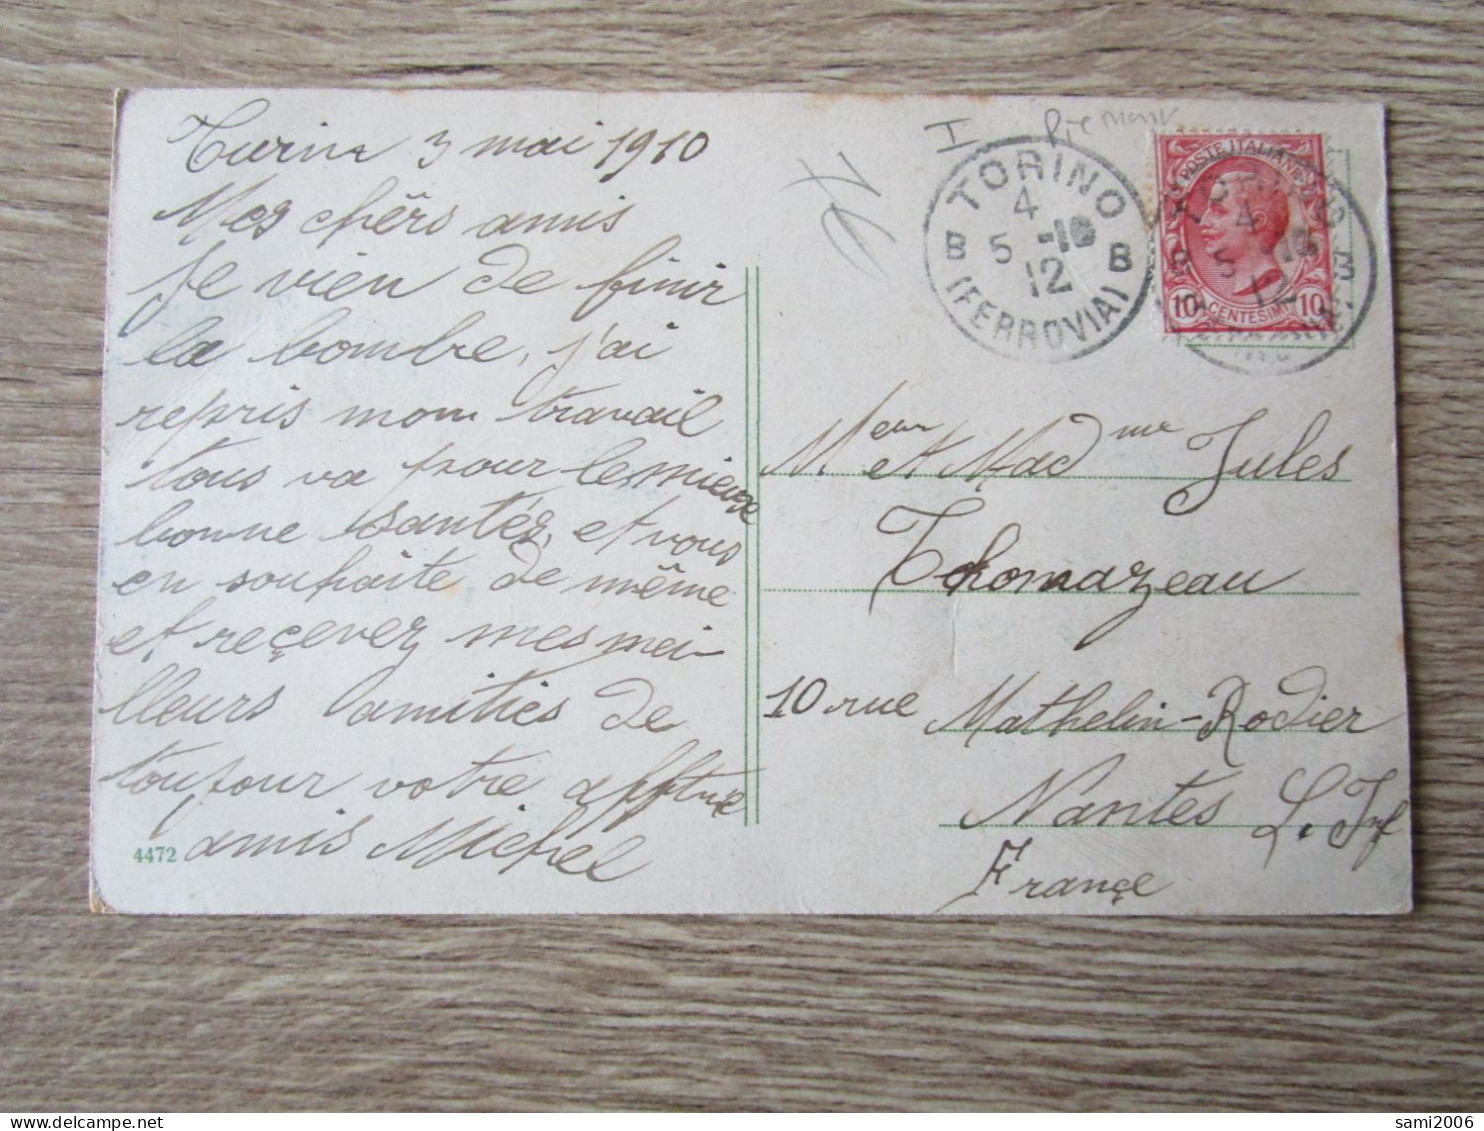 Turin 3 mai 1910
Mes chêrs amis
Je vien de finir
la bombe, j'ai
repris mon travail
tous va pour lemieux
bonne santés, et vous
en souhaite de même
et reçevez mes mei-
lleurs amitiés de
toujour votre afftué
amis Michel
4472
I
Piemont
TORINO
4
5 -10
12
B B
(FERROVIA)
POSTE ITALIANE
10 CENTESIMI 10
4
5 10
12
Meur et Madme Jules
Thomazeau
10 rue Mathelin-Rodier
Nantes L. Inf
Françe
sami2006